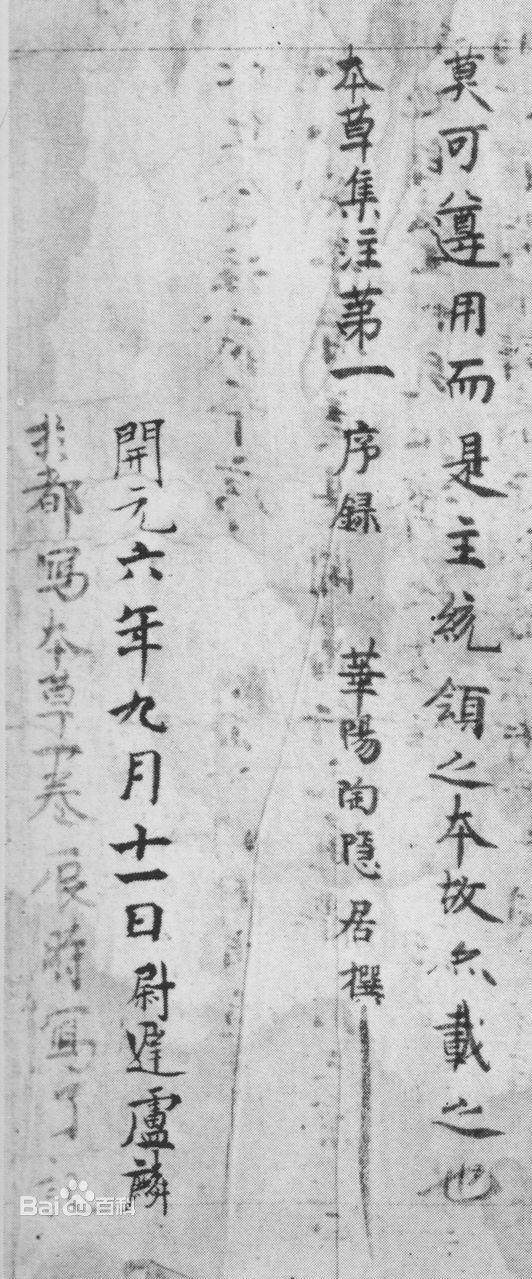 莫可遵用而是主統領之本故亦載之也
本草集注第一序録 華陽陶隱居撰
開元六年九月十一日尉遲盧麟
於都寫本草一卷辰時寫了記
Bai du 百科